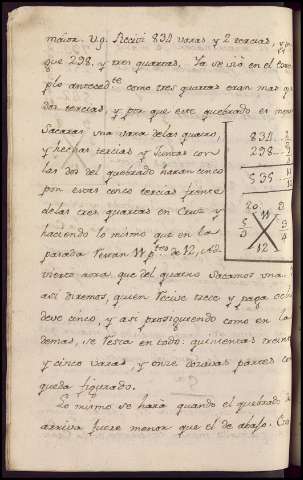 maior. V.g. Reciví 834 varas y 2 tercias,
que 298. y tres quartas. Ya se vió en el exem
plo antecedte como tres quartas eran mas q
dos tercias, y por que este quebrado es menor
Sacaras una vara de las quatro,
y hechas tercias y juntas con
las dos del quebrado haran cinco
pon estas cinco tercias frente
de las tres quartas en Cruz y
haciendo lo mismo que en la
parada veran 11 ptes de 12, Ad-
vierte aora que del quatro sacamos una
asi diremos, quien recive trece y paga ocho
deve cinco, y asi prosiguiendo como en la
demas, se resta en todo quinientas treinta
y cinco varas, y onze dozavas partes co
queda figurado.
Lo mismo se hará quando el quebrado de
arriva fuere menor que el de abajo.
834 2
298 3
535 11 12
20 9
11
5 3
3 4
12